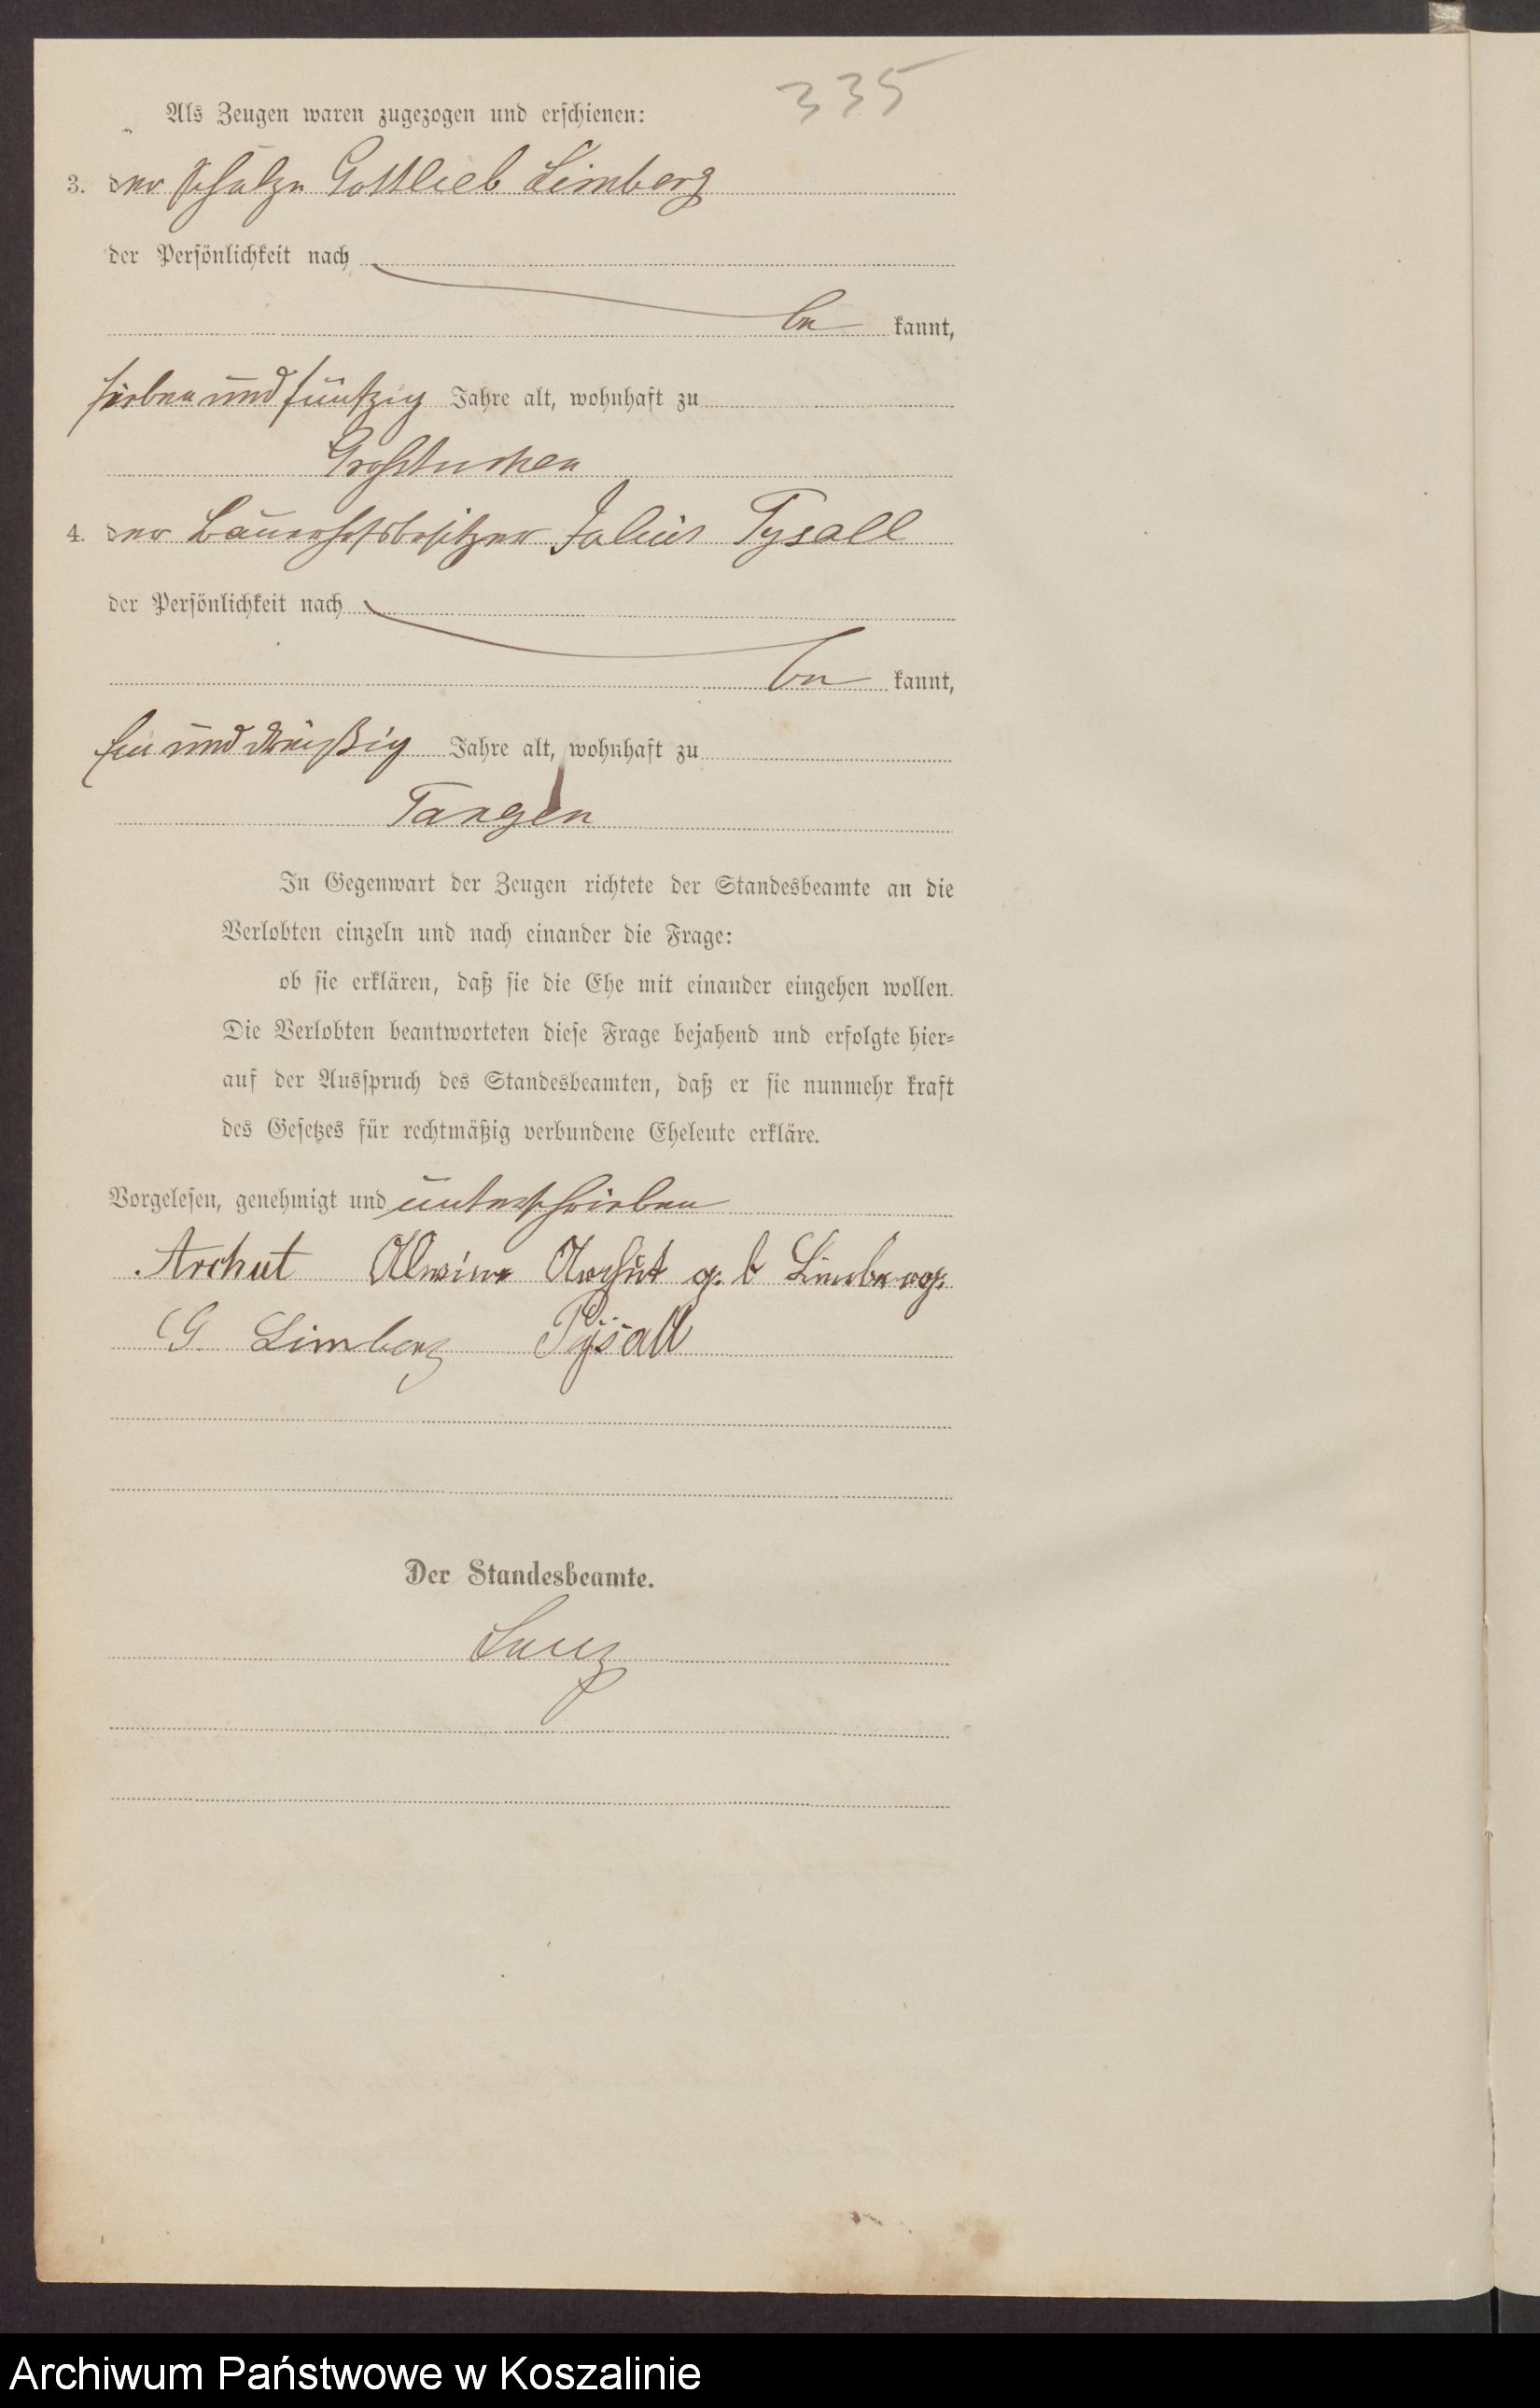 335
Als Zeugen waren zugezogen und erschienen:
3. der Schulze Gottlieb Limberg
der Persönlichkeit nach
be kannt,
sieben und fünfzig Jahre alt, wohnhaft zu
Großtuchen
4. der Bauerhofsbesitzer Julius Pysall
der Persönlichkeit nach
be kannt,
und dreißig Jahre alt, wohnhaft zu
Tangen
In Gegenwart der Zeugen richtete der Standesbeamte an die
Verlobten einzeln und nach einander die Frage:
ob sie erklären, daß sie die Ehe mit einander eingehen wollen.
Die Verlobten beantworteten diese Frage bejahend und erfolgte hier-
auf der Ausspruch des Standesbeamten, daß er sie nunmehr kraft
des Gesetzes für rechtmäßig verbundene Eheleute erkläre.
Vorgelesen, genehmigt und unterschrieben
Archut Alwine Archut g. b Limberg.
G Limberg Pysall
Der Standesbeamte.
Archiwum Państwowe w Koszalinie